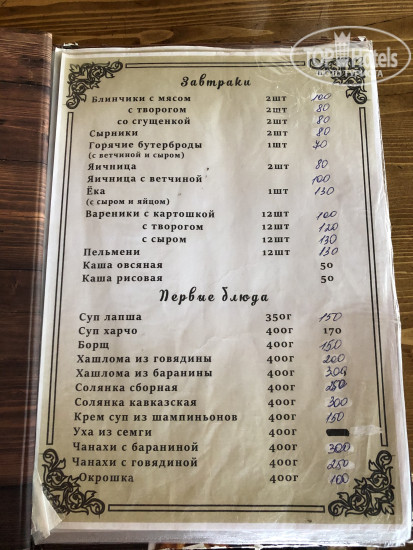 TOP Hotels
Завтраки
Блинчики с мясом 2шт 100
с творогом 2шт 80
со сгущенкой 2шт 80
Сырники 2шт 80
Горячие бутерброды 1шт 70
(с ветчиной и сыром)
Яичница 2шт 80
Яичница с ветчиной 100
Ёка 1шт 130
(с сыром и яйцом)
Вареники с картошкой 12шт 100
с творогом 12шт 120
с сыром 12шт 130
Пельмени 12шт 130
Каша овсяная 50
Каша рисовая 50
Первые блюда
Суп лапша 350г 150
Суп харчо 400г 170
Борщ 400г 150
Хашлома из говядины 400г 200
Хашлома из баранины 400г 300
Солянка сборная 400г 250
Солянка кавказская 400г 300
Крем суп из шампиньонов 400г 150
Уха из семги 400г
Чанахи с бараниной 400г 300
Чанахи с говядиной 400г 250
Окрошка 400г 100